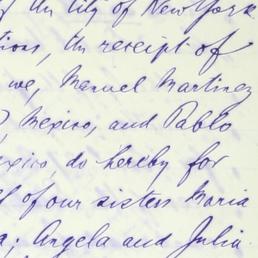 the city of New York
tions, the receipt of
we, Manuel Martinez
Mexico, and Pablo
exico, do hereby for
f of our sisters Maria
a; Angela and Julia